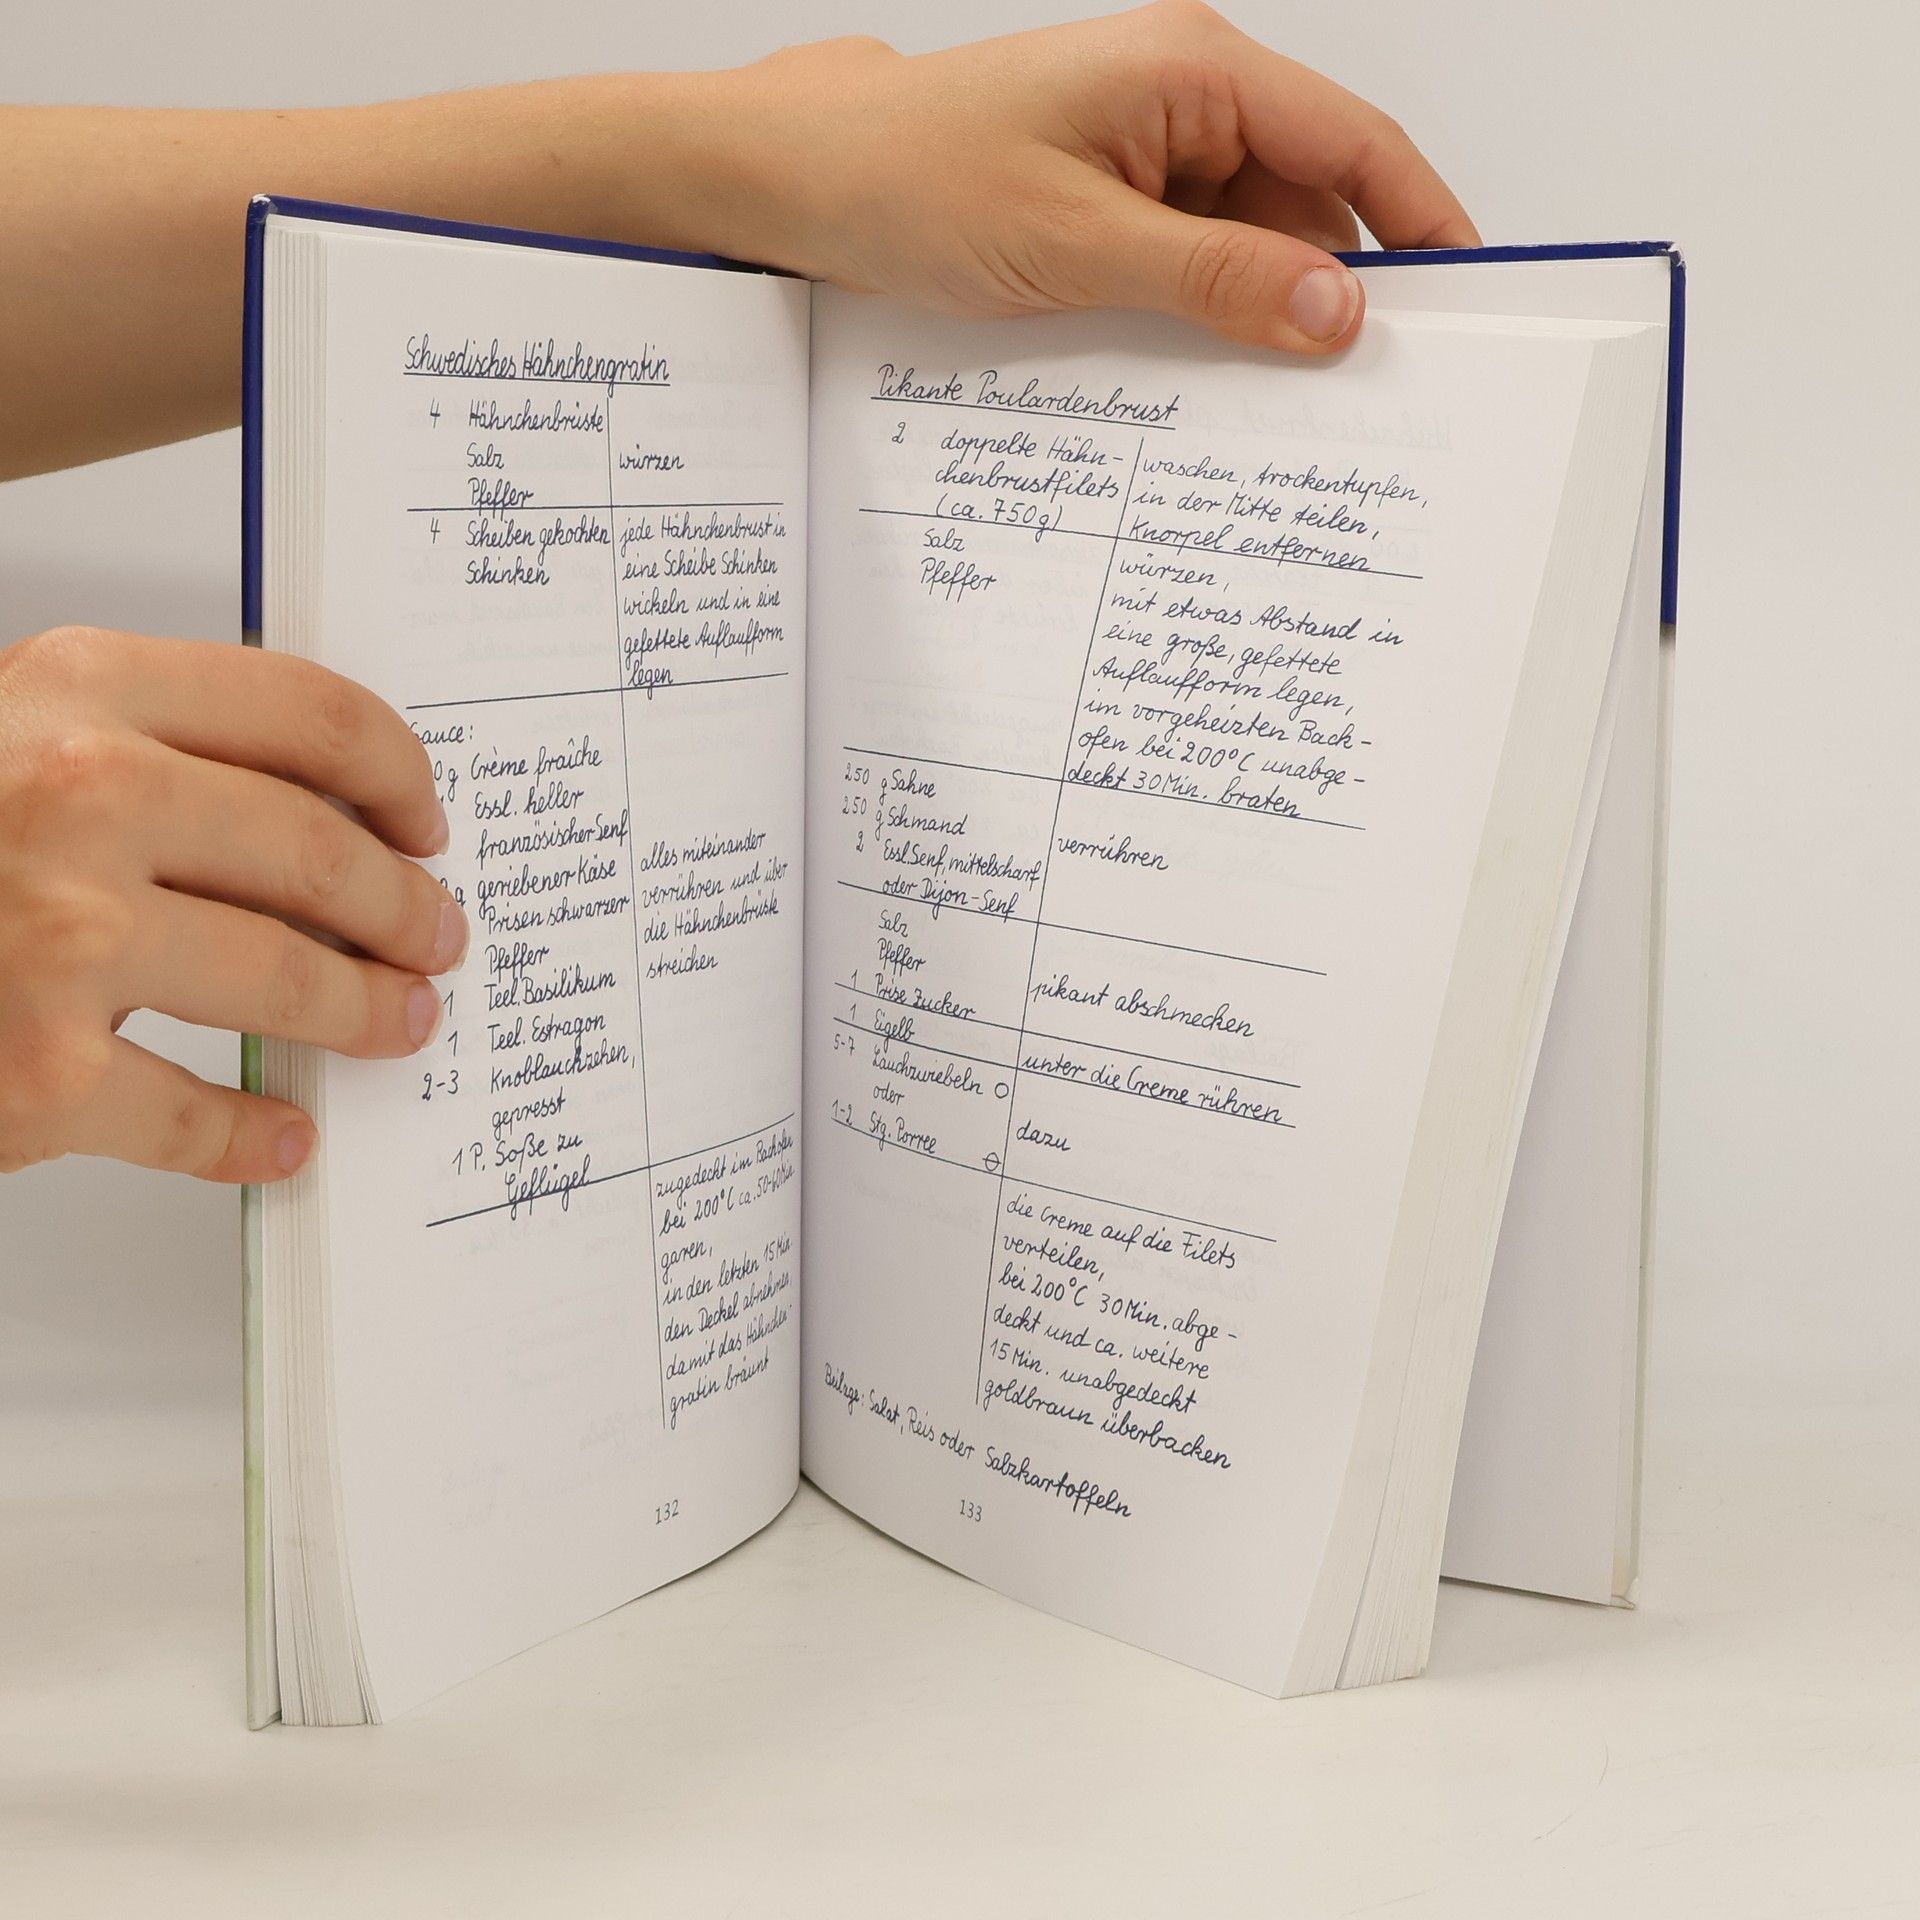 Schwedisches Hähnchengratin
4 Hähnchenbrüste
Salz
würzen
Pfeffer
4 Scheiben gekochten
Schinken
jede Hähnchenbrust in
eine Scheibe Schinken
wickeln und in eine
gefettete Auflaufform
legen
Sauce:
g Crème fraîche
Essl. heller
französischer Senf
g geriebener Käse
Prisen schwarzer
Pfeffer
1 Teel. Basilikum
1 Teel. Estragon
2-3 Knoblauchzehen,
gepresst
1 P. Soße zu
Geflügel
alles miteinander
verrühren und über
die Hähnchenbrüste
streichen
zugedeckt im Backofen
bei 200°C ca. 50-60 Min.
garen,
in den letzten 15 Min.
den Deckel abnehmen,
damit das Hähnchen-
gratin bräunt
132
Pikante Poulardenbrust
2 doppelte Hähn-
chenbrustfilets
(ca. 750g)
waschen, trockentupfen,
in der Mitte teilen,
Knorpel entfernen
Salz
Pfeffer
würzen,
mit etwas Abstand in
eine große, gefettete
Auflaufform legen,
im vorgeheizten Back-
ofen bei 200°C unabge-
deckt 30 Min. braten
250 g Sahne
250 g Schmand
2 Essl. Senf, mittelscharf
oder Dijon-Senf
verrühren
Salz
Pfeffer
1 Prise Zucker
pikant abschmecken
1 Eigelb
unter die Creme rühren
5-7 Lauchzwiebeln
oder
1-2 Stg. Porree
dazu
die Creme auf die Filets
verteilen,
bei 200°C 30 Min. abge-
deckt und ca. weitere
15 Min. unabgedeckt
goldbraun überbacken
Beilage: Salat, Reis oder Salzkartoffeln
133